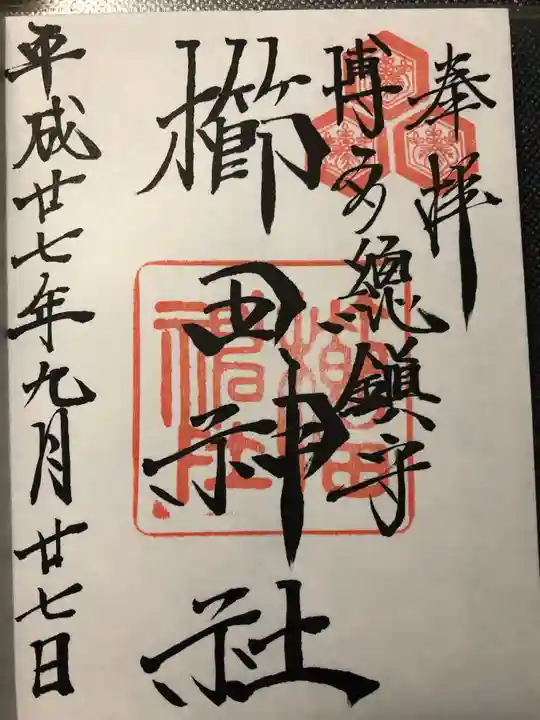 奉拝
博多總鎮守
櫛田神社
平成廿七年九月廿七日
櫛田
神社